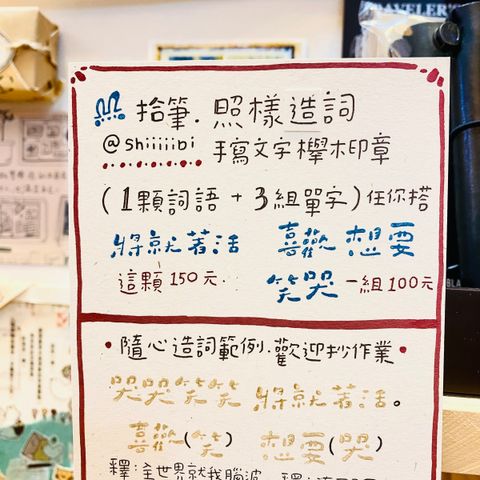 TRAVELER'S
拾筆.照樣造詞
@shiiiiibi 手寫文字櫸木印章
(1顆詞語 + 3組單字)任你搭
將就著活 喜歡 想要
這顆150元. 笑哭 一組100元
•隨心造詞範例.歡迎抄作業•
哭哭笑笑 將就著活。
喜歡(笑) 想要(哭)
釋:全世界就我腦波